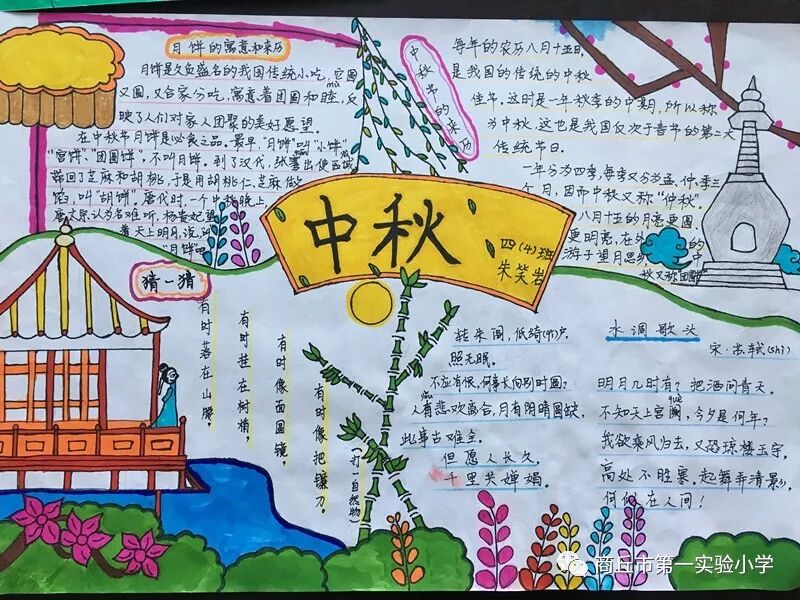 月饼的寓意和来历
月饼是久负盛名的我国传统小吃，它圆
又圆，又合家分吃，寓意着团圆和睦，反
映了人们对家人团聚的美好愿望。
在中秋节月饼是必食之品。最早"月饼"叫"小饼"
"宫饼"、"团圆饼"，不叫月饼。到了汉代，张骞出使西域
带回了芝麻和胡桃，于是用胡桃仁、芝麻做
馅，叫"胡饼"。唐代时，一个中秋晚上，
着天上明月，说，
"月饼"吧
中秋节的来历
每年的农历八月十五日，
是我国的传统的中秋
佳节。这时是一年秋季的中期，所以称
为中秋。这也是我国仅次于春节的第二大
传统节日。
一年分为四季，每季又分为孟、仲、季三
个月，因而中秋又称"仲秋"。
八月十五的月亮更圆，
更明亮，在外
的
游子望月思
中
秋又称"团圆"
中秋
四(4)班
朱笑岩
猜一猜
有时落在山腰，
有时挂在树梢，
有时像面圆镜，
有时像把镰刀。
(打一自然物)
水调歌头
宋·苏轼(shì)
明月几时有？把酒问青天。
不知天上宫阙què，今夕是何年？
我欲乘风归去，又恐琼楼玉宇，
高处不胜寒，起舞弄清影，
何似在人间！
转朱阁，低绮(qǐ)户，
照无眠。
不应有恨，何事长向别时圆？
人有悲欢离合，月有阴晴圆缺，
此事古难全。
但愿人长久，
千里共婵娟。
商丘市第一实验小学